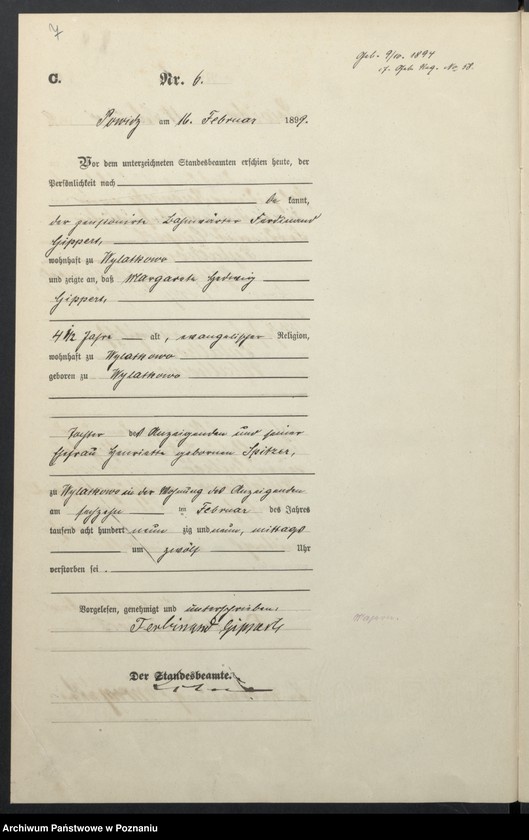 7
Geb. 9/IV. 1894
s. Geb. Reg. No 58.
C.
Nr. 6.
Powidz am 16. Februar 1899.
Vor dem unterzeichneten Standesbeamten erschien heute, der
Persönlichkeit nach
be kannt,
der pensionirte Bahnwärter Ferdinand
Gippert,
wohnhaft zu Wylatkowo
und zeigte an, daß Margarete Hedwig
Gippert,
4 1/2 Jahre alt, evangelischer Religion,
wohnhaft zu Wylatkowo
geboren zu Wylatkowo
Tochter des Anzeigenden und seiner
Ehefrau Henriette geborenen Spitzer,
zu Wylatkowo in der Wohnung des Anzeigenden
am sechzehn im Februar des Jahres
tausend acht hundert neun zig und neun, mittags
um zwölf Uhr
verstorben sei.
Vorgelesen, genehmigt und unterschrieben.
Ferdinand Gippert
Der Standesbeamte.
Archiwum Państwowe w Poznaniu